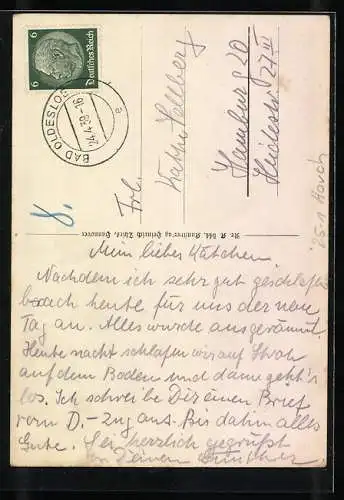 6 Deutsches Reich 6
BAD OLDESLOE
24.4.39-16
e
Frl.
Käthe Hallberg
Hamburg 20
Heidestr. 27 III
8.
Mein liebes Kätchen
Nachdem ich sehr gut geschlafen
brach heute für uns der neue
Tag an. Alles wurde ausgeräumt.
Heute nacht schlafen wir auf Stroh
auf dem Boden und dann geht's
los. Ich schreibe Dir einen Brief
vom D.-Zug aus. Bis dahin alles
Gute. Sei herzlich gegrüßt
von Deinem Günther